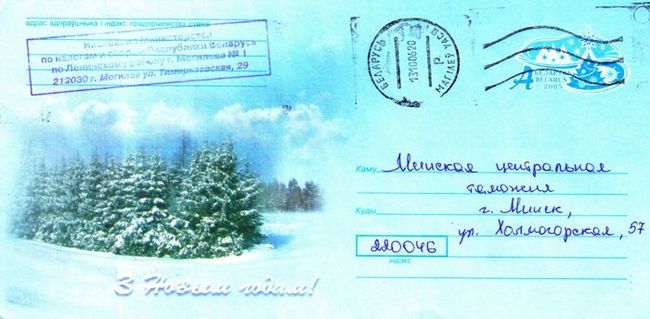 адрас адпраўшчыка і індэкс прадпрыемства сувязі
Министерства
по налогам и сборам Республики Беларусь
по Ленинскому району г. Могилева № 1
212030 г. Могилев ул. Тимирязевская, 29
БЕЛАРУСЬ
МАГІЛЕЎ
А
БЕЛАРУСЬ
BELARUS
2005
Каму Минская центральная
таможня
Куды г. Минск,
ул. Холмогорская, 57
220046
індэкс
З Новым годам!